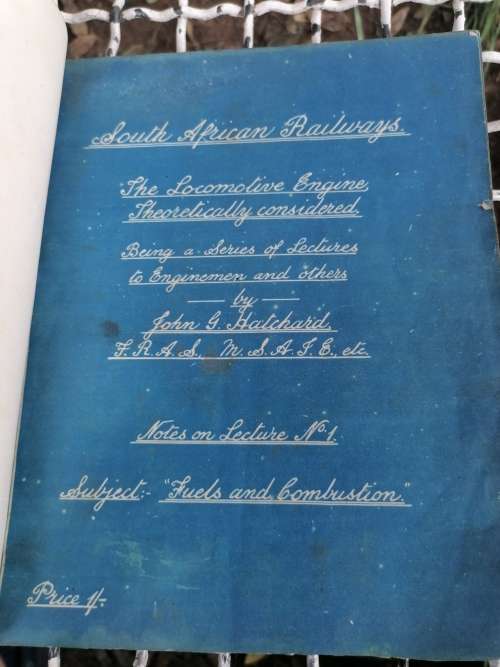 South African Railways.
The Locomotive Engine,
Theoretically considered.
Being a Series of Lectures
to Enginemen and others
— by —
John G. Hatchard,
F.R.A.S., M.S.A.I.E., etc.
Notes on Lecture No. 1.
Subject:- "Fuels and Combustion."
Price 1/-